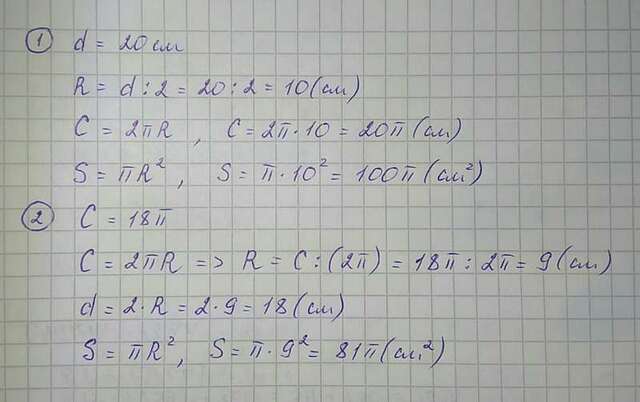 ① d = 20 см
R = d : 2 = 20 : 2 = 10 (см)
C = 2πR , C = 2π·10 = 20π (см)
S = πR², S = π·10² = 100π (см²)
② C = 18π
C = 2πR => R = C : (2π) = 18π : 2π = 9 (см)
d = 2·R = 2·9 = 18 (см)
S = πR², S = π·9² = 81π (см²)